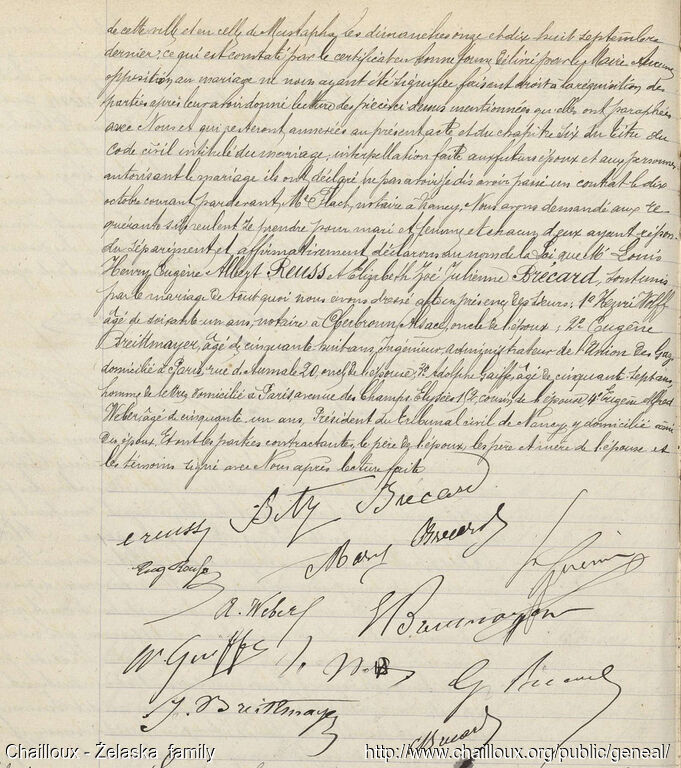 de cette ville et en celle de Mustapha, les dimanches onze et dix huit septembre
dernier, ce qui est constaté par le certificat en bonne forme délivré par le Maire. Aucune
opposition au mariage ne nous ayant été signifiée, faisant droit à la réquisition des
parties après leur avoir donné lecture des pièces ci dessus mentionnées qu'elles ont paraphées
avec Nous et qui resteront annexées au présent acte et du chapitre six du titre du
Code civil intitulé du mariage, interpellation faite aux futurs époux et aux personnes
autorisant le mariage ils ont déclaré passé un contrat le dix
octobre courant par devant Me notaire à Nancy. Nous avons demandé aux re
quérants s'ils veulent se prendre pour mari et femme et chacun d'eux ayant répon
du séparément et affirmativement déclarons au nom de la Loi que Mr Louis
Henry Eugène Albert Reuss et Elizabeth Zoé Julienne Brecard, sont unis
par le mariage de tout quoi nous avons dressé acte en présence des sieurs: 1o Henri
âgé de soixante un ans, notaire à Oberbronn Alsace, oncle de l'époux; 2o Eugène
Breittmayer, âgé de cinquante huit ans, Ingénieur administrateur de l'Union des Gaz
domicilié à Paris, rue d'Aumale 20, oncle de l'épouse, 3o Adolphe Gaiffe, âgé de cinquante sept ans,
homme de lettres domicilié à Paris avenue des Champs Elysées cousin de l'épouse 4o Eugène Alfred
Weber âgé de cinquante un ans, Président du Tribunal civil de Nancy, y domicilié ami
des époux. Et ont les parties contractantes, le père de l'époux, les père et mère de l'épouse et
les témoins signé avec Nous après lecture faite
Reuss Betzy Brécard
Mary Brecard
A. Weber
Breittmayer
Gaiffe G Brecard
J. Breittmayer
Brecard
Chailloux - Żelaska family http://www.chailloux.org/public/geneal/